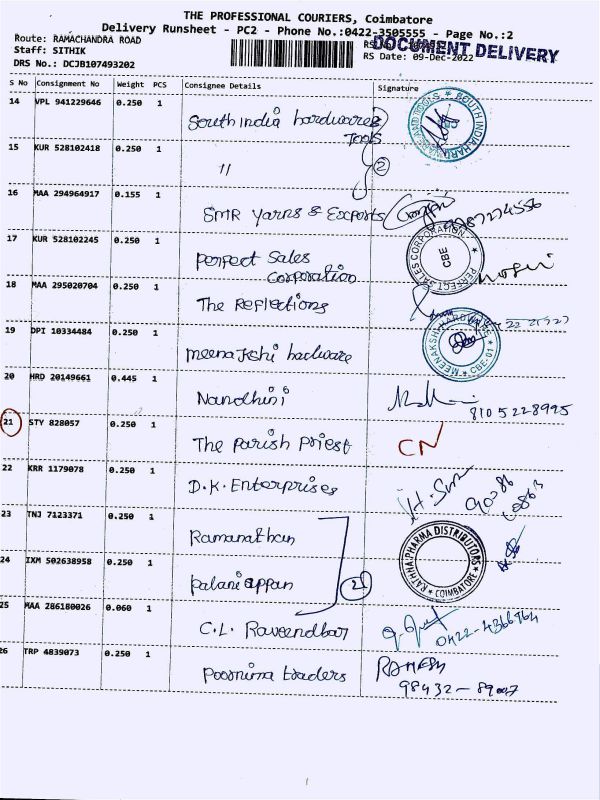 THE PROFESSIONAL COURIERS, Coimbatore
Delivery Runsheet - PC2 - Phone No.:0422-3505555 - Page No.:2
Route: RAMACHANDRA ROAD
DOCUMENT DELIVERY
Staff: SITHIK
RS Date: 09-Dec-2022
DRS No.: DCJB107493202
S No Consignment No Weight PCS Consignee Details Signature
14 VPL 941229646 0.250 1 South india hardware &
Tools
SOUTH INDIA HARDWARE AND TOOLS
15 KUR 528102418 0.250 1 11
2
16 MAA 294964917 0.155 1 SMR Yarns & Exports
17 KUR 528102245 0.250 1 perfect Sales
Corporation
PERFECT SALES CORPORATION
CBE
18 MAA 295020704 0.250 1 The Reflections
19 DPI 10334484 0.250 1 meenakshi hardware
MEENAKSHI HARDWARE
CBE-01
20 HRD 20149661 0.445 1 Nandhini
8105228995
21 STY 828057 0.250 1 The parish priest CN
22 KRR 1179078 0.250 1 D.K. Enterprises
23 TNJ 7123371 0.250 1 Ramanathan
RATHHA PHARMA DISTRIBUTORS
COIMBATORE
24 IXM 502638958 0.250 1 palaniappan
25 MAA 286180026 0.060 1 C.L. Raveendhar
0422-4366464
26 TRP 4839073 0.250 1 Poornima traders RAMESH
98432-89007